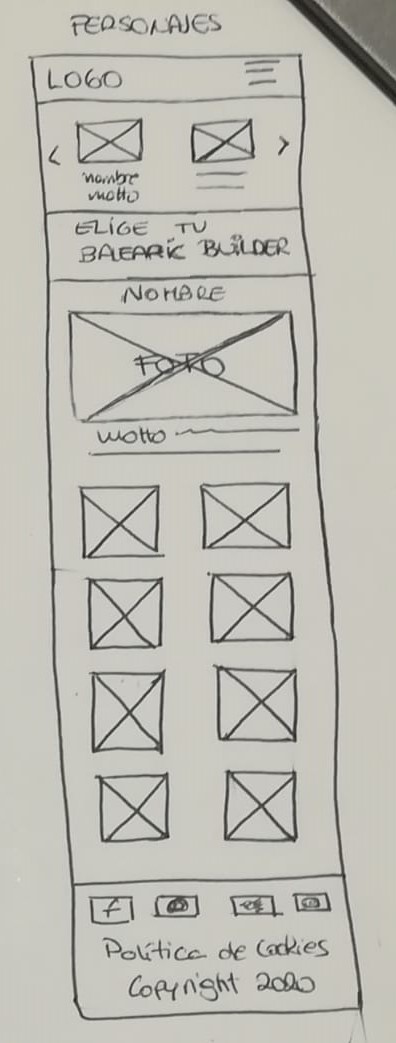 PERSONAJES
LOGO
< >
nombre
motto
ELIGE TU
BALEARIC BUILDER
NOMBRE
FOTO
motto
f
Política de Cookies
Copyright 2020